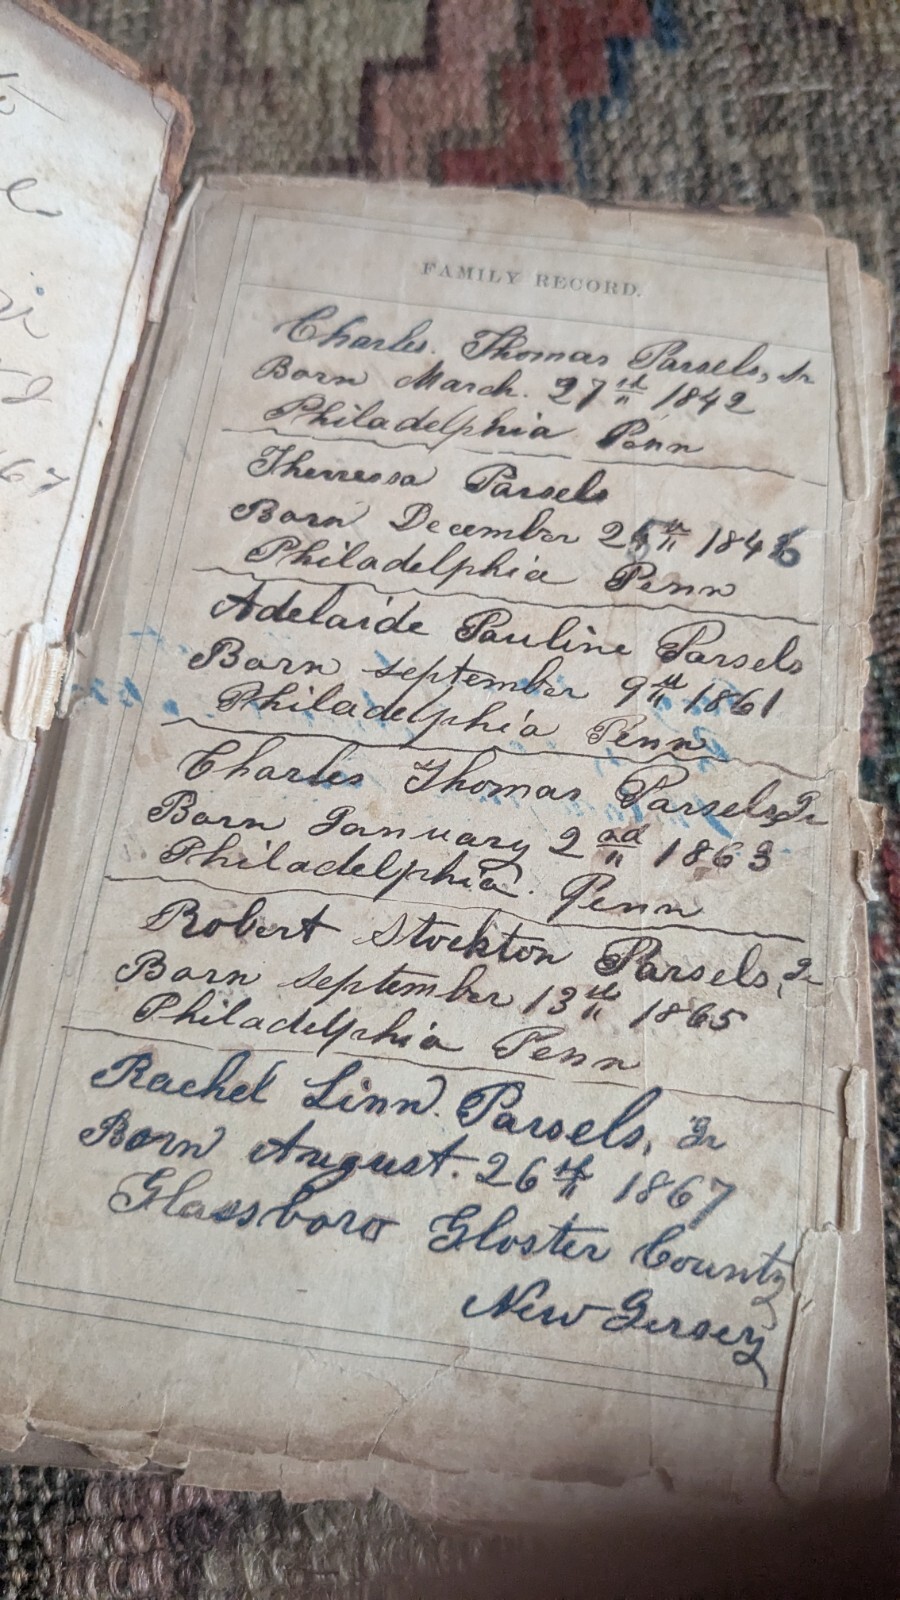 FAMILY RECORD.
Charles. Thomas Parsels, Sr
Born March. 27th 1842
Philadelphia Penn
Parsels
Born December 25th 1846
Philadelphia Penn
Adelaide Pauline Parsels
Born september 9th 1861
Philadelphia Penn
Charles Thomas Parsels, Jr
Born January 2nd 1863
Philadelphia. Penn
Robert Stockton Parsels, Jr
Born september 13th 1865
Philadelphia Penn
Rachel Linn. Parsels, Jr
Born August. 26th 1867
Glassboro Gloster County
New Jersey
67